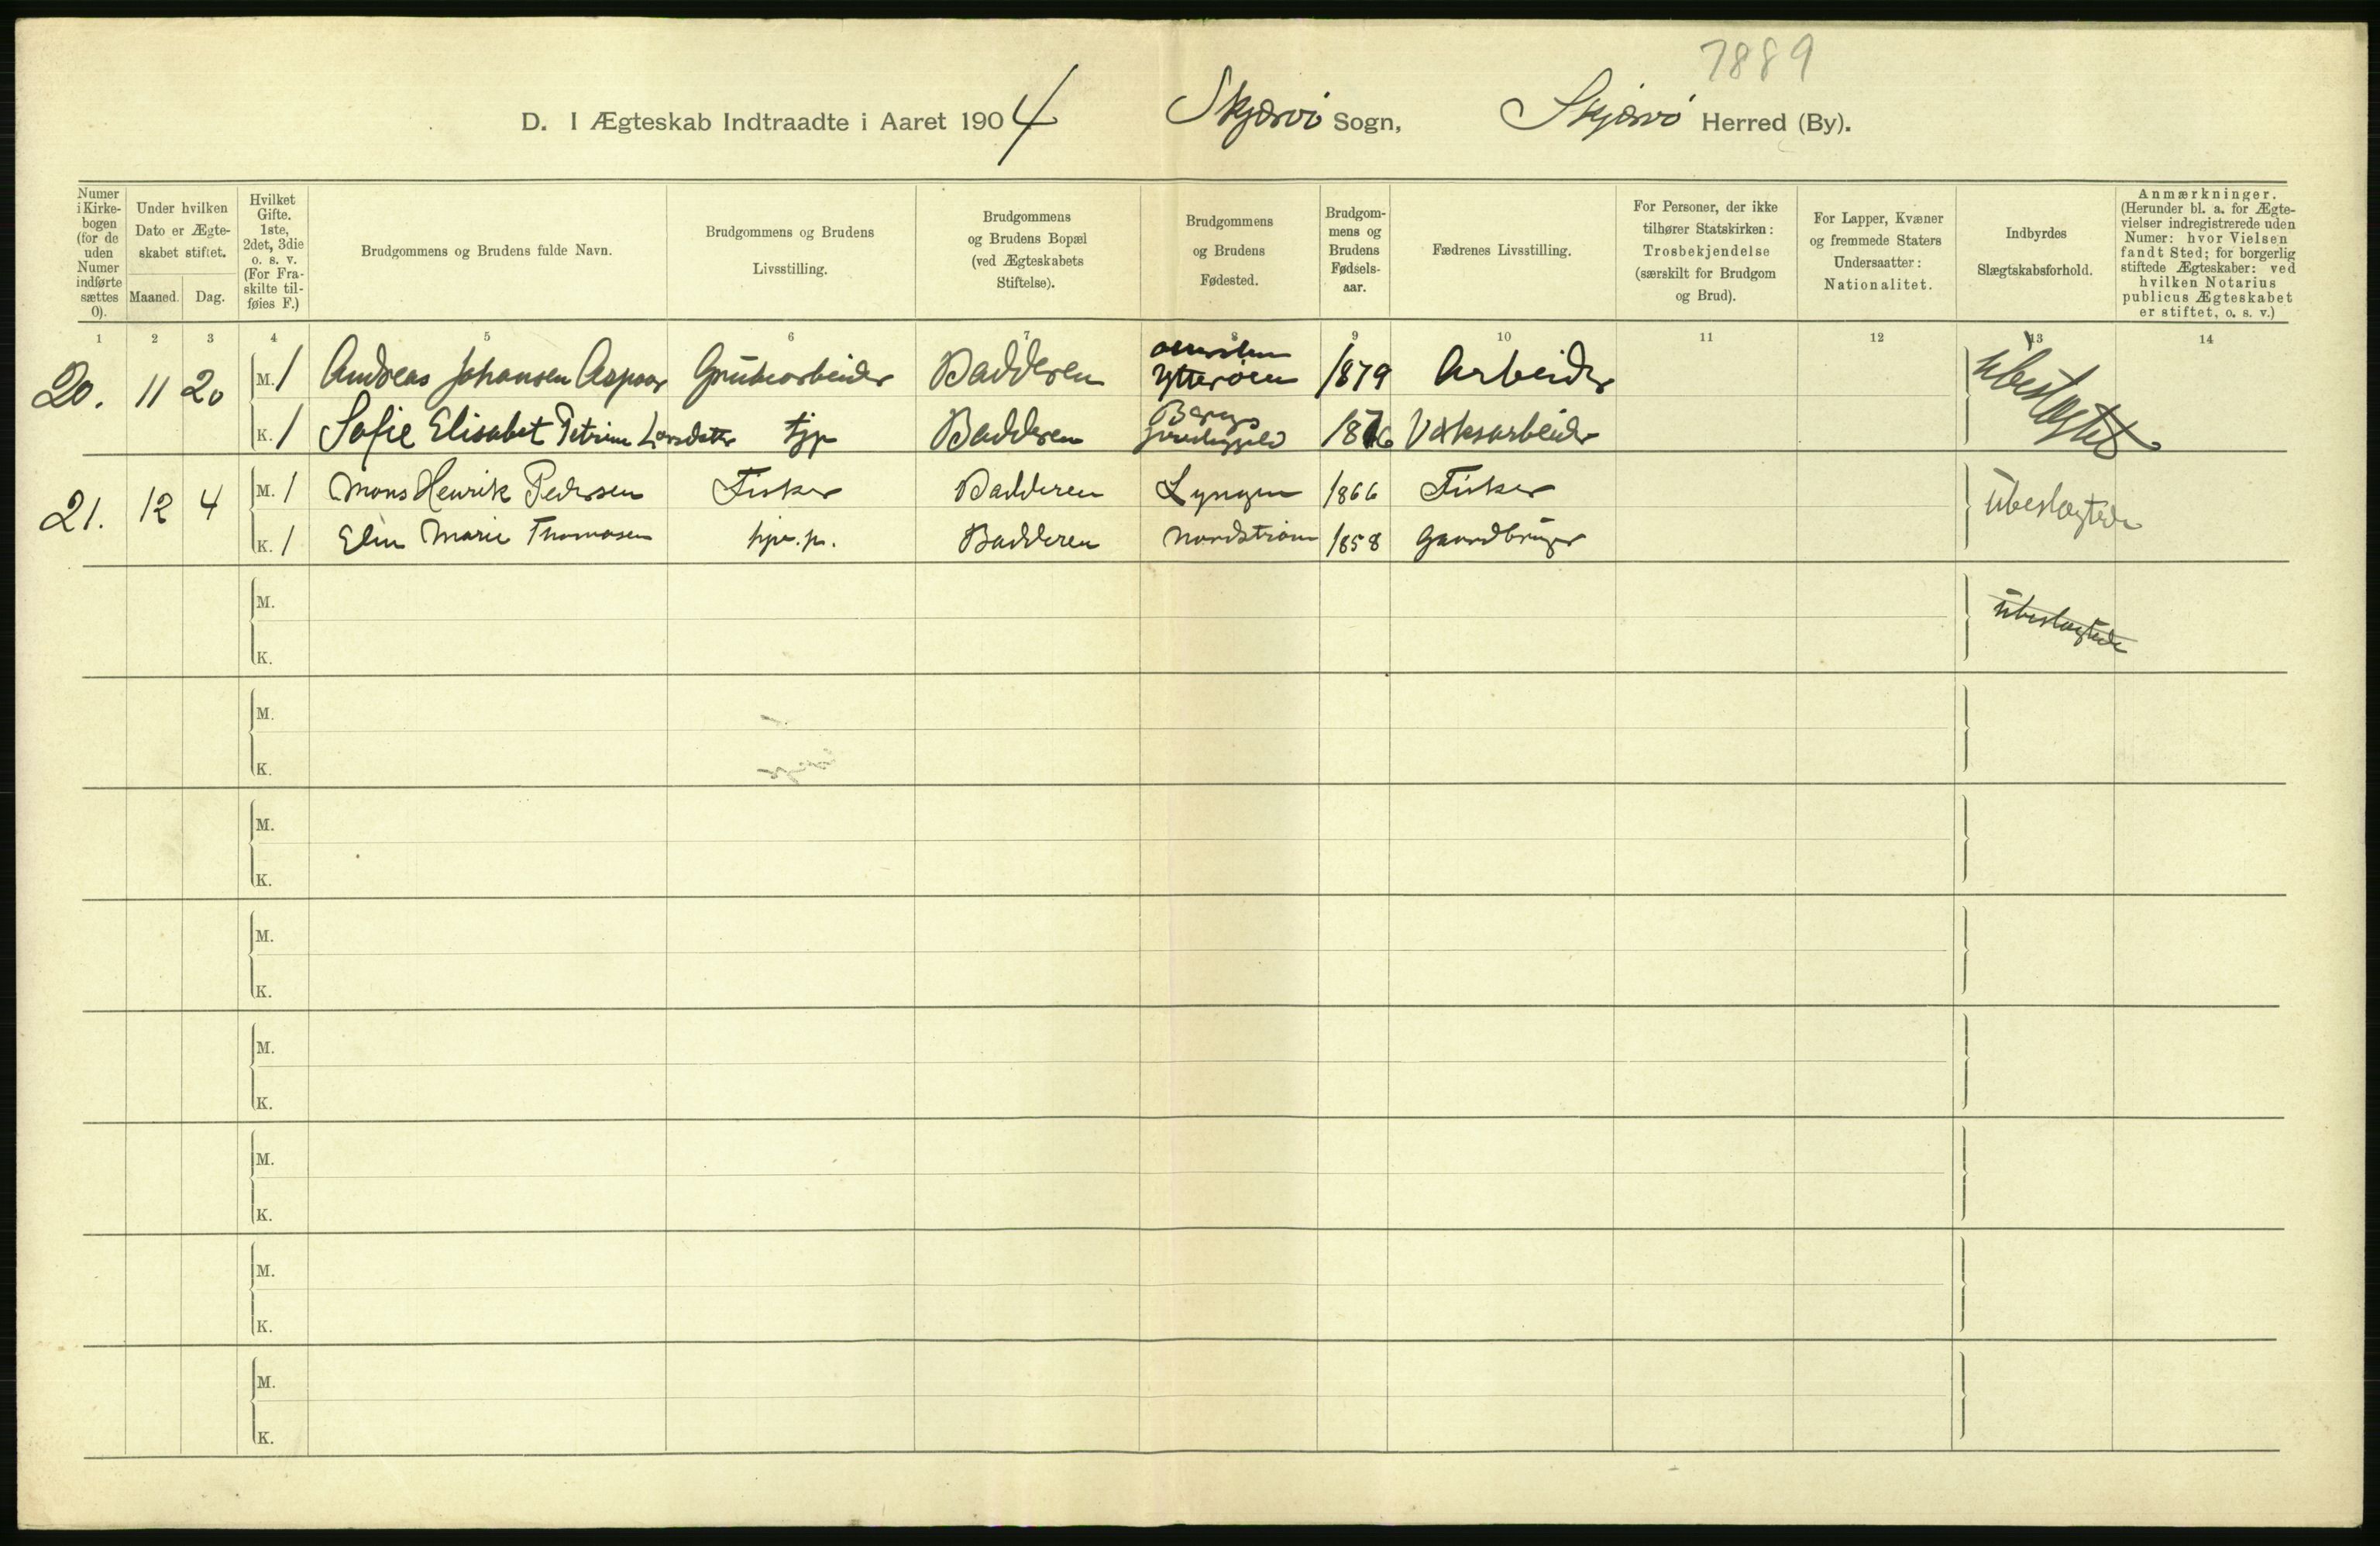 7889
D. I Ægteskab Indtraadte i Aaret 1904 Skjærvö Sogn, Skjærvö Herred (By).
Numer i Kirkebogen (for de uden Numer indførte sættes 0).
Under hvilken Dato er Ægteskabet stiftet.
Maaned. Dag.
Hvilket Gifte. 1ste, 2det, 3die o. s. v. (For Fraskilte tilføies F.)
Brudgommens og Brudens fulde Navn.
Brudgommens og Brudens Livsstilling.
Brudgommens og Brudens Bopæl (ved Ægteskabets Stiftelse).
Brudgommens og Brudens Fødested.
Brudgommens og Brudens Fødselsaar.
Fædrenes Livsstilling.
For Personer, der ikke tilhører Statskirken: Trosbekjendelse (særskilt for Brudgom og Brud).
For Lapper, Kvæner og fremmede Staters Undersaatter: Nationalitet.
Indbyrdes Slægtskabsforhold.
Anmærkninger. (Herunder bl. a. for Ægtevielser indregistrerede uden Numer: hvor Vielsen fandt Sted; for borgerlig stiftede Ægteskaber: ved hvilken Notarius publicus Ægteskabet er stiftet, o. s. v.)
1 2 3 4 5 6 7 8 9 10 11 12 13 14
20. 11 20 M. 1 Andreas Johansen Aspaas Grubearbeider Badderen Ytterøen 1879 Arbeider ubeslægtet
K. 1 Sofie Elisabet Petrine Larsdatter tjp Badderen 1876 Værksarbeider
21. 12 4 M. 1 Mons Henrik Pedersen Fisker Badderen Lyngen 1866 Fisker ubeslægtede
K. 1 Elen Marie Thomasen Badderen Nordstrøm 1858 Gaardbruger
M. ubeslægtede
K.
M.
K.
M.
K.
M.
K.
M.
K.
M.
K.
M.
K.
M.
K.